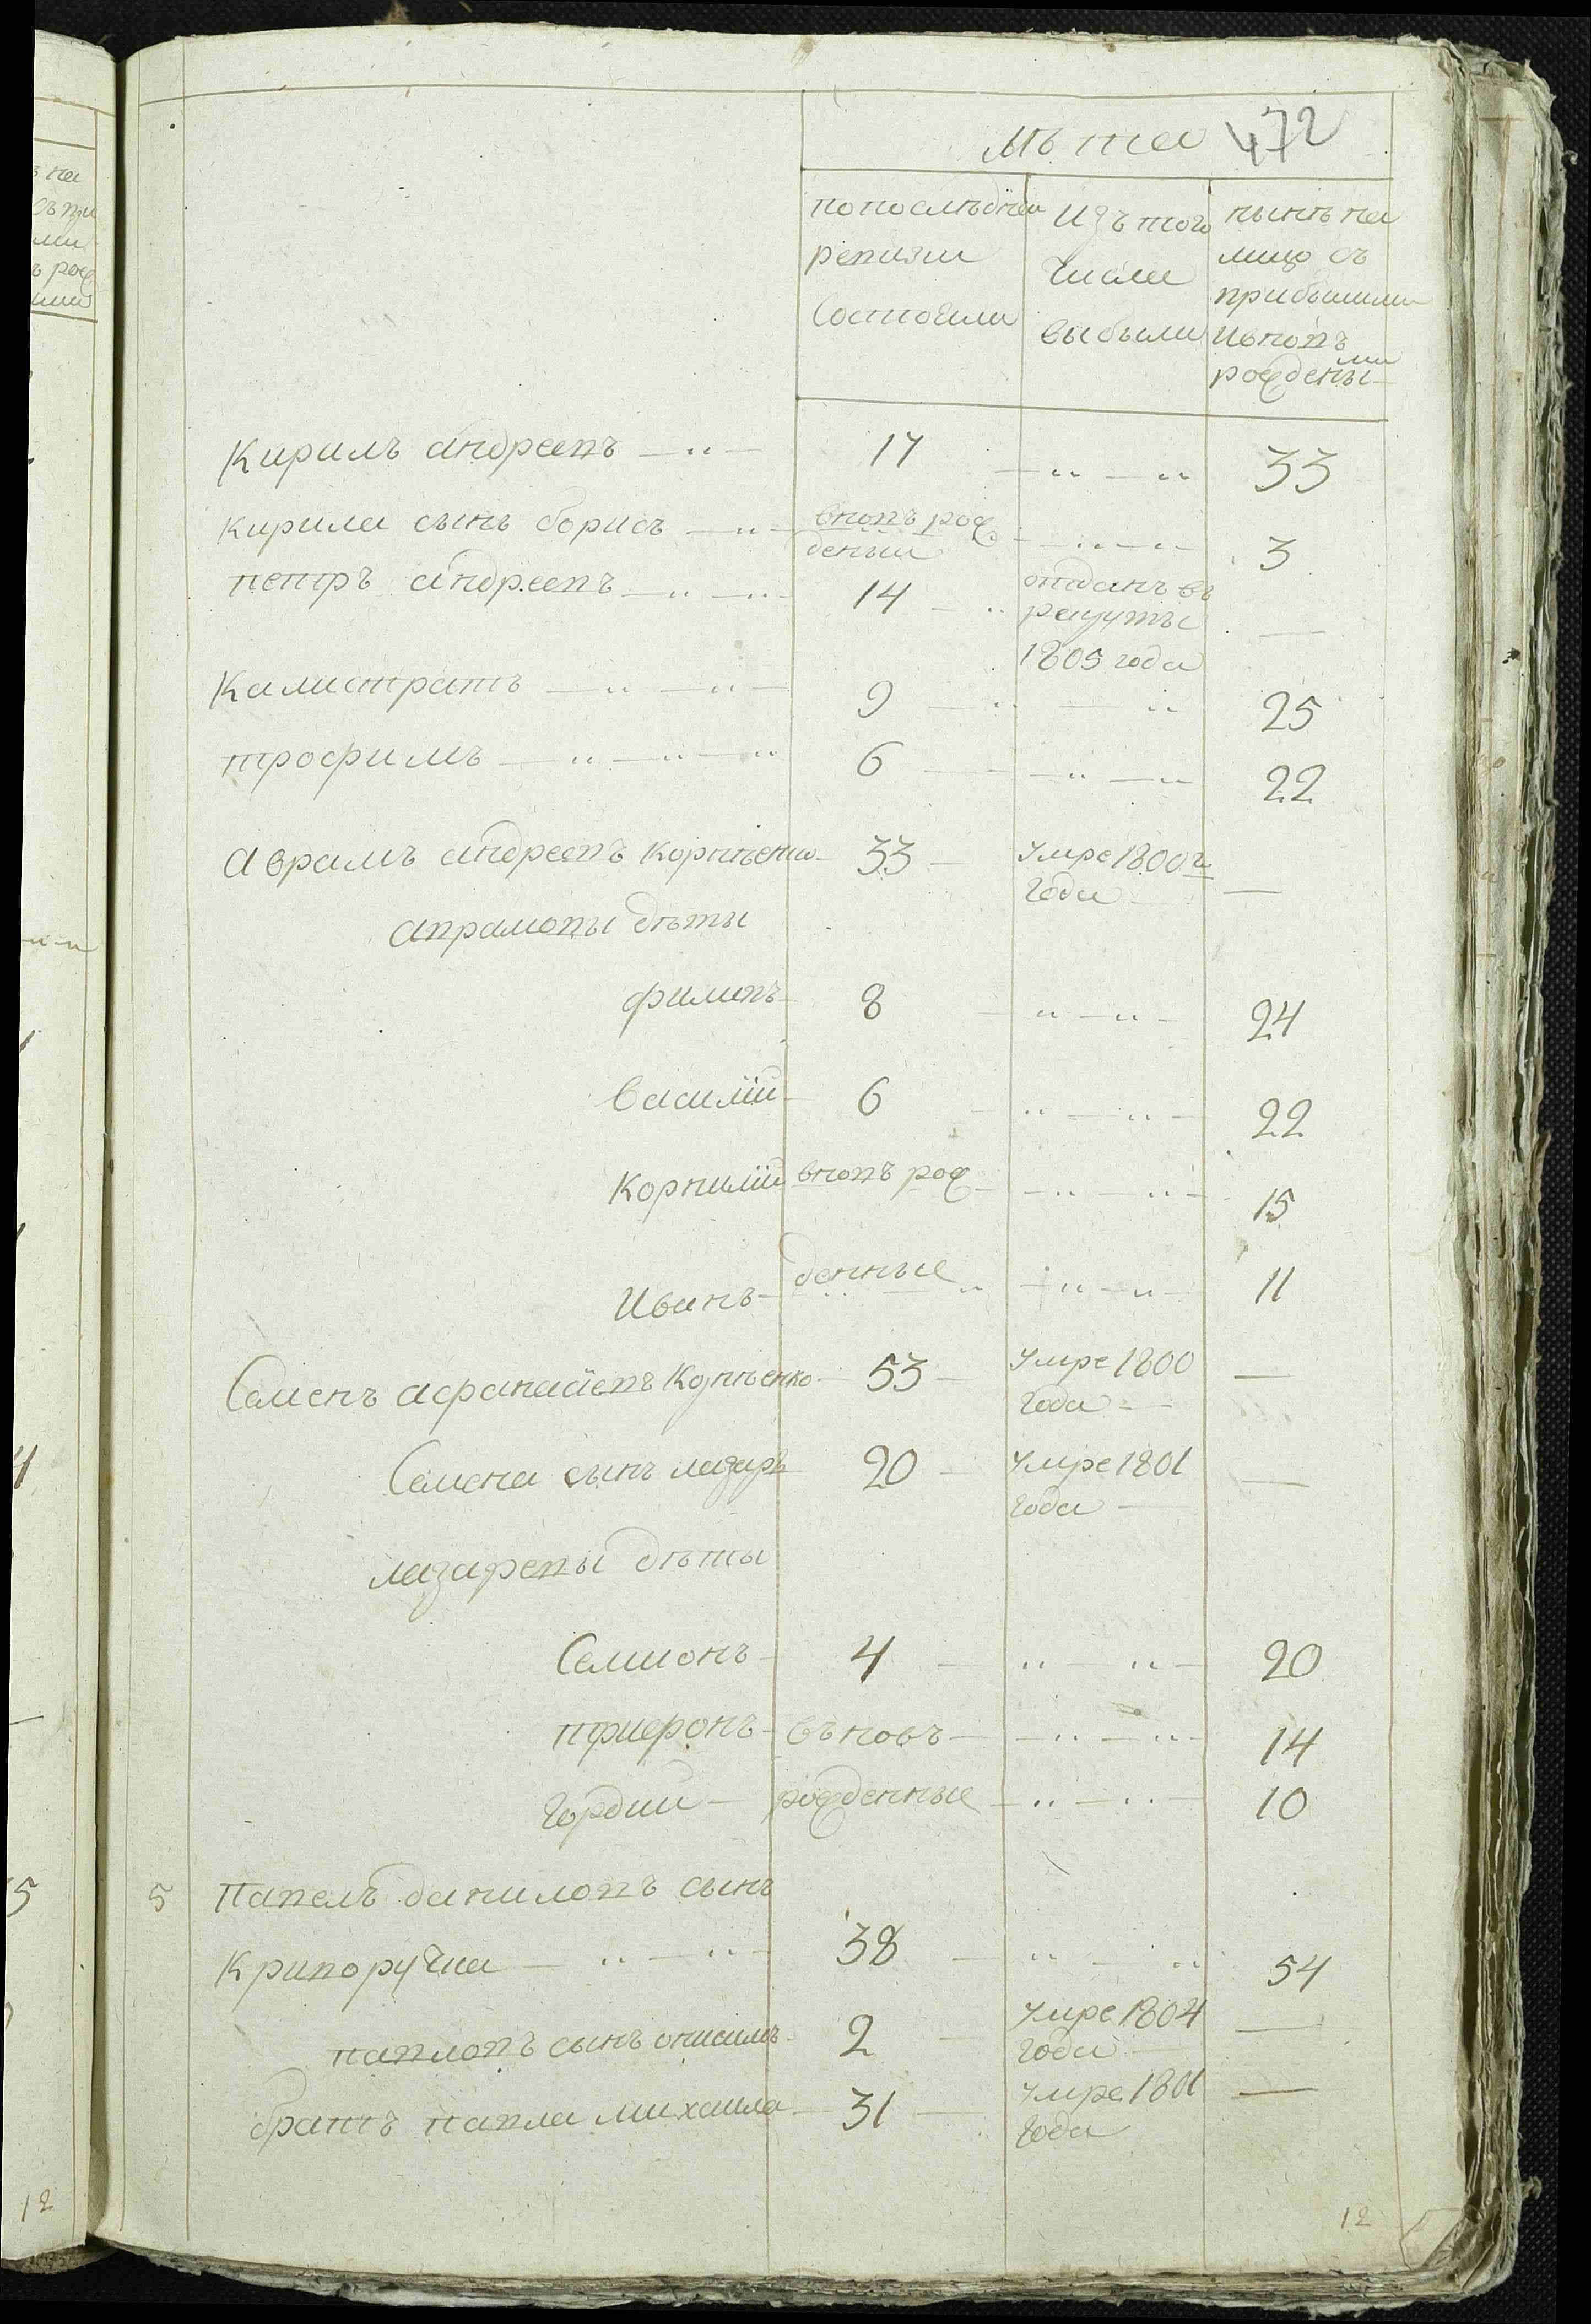 лѣта 472
попоследнеи
ревизии
состояли
изътого
числа
выбыли
нынѣ на
лицо съ
прибылыми
ивновъ
рожденны
ми
Кирилъ андреевъ 17 33
Кирила сынъ борисъ вновъ рож
денъ 3
петръ андреевъ 14 отданъ въ
рекруты
1805 года
Калистратъ 9 25
трофимъ 6 22
Аврамъ андреевъ Корнѣенко 33 умре 1800г
года
аврамовы дѣты
филипъ 8 24
Василий 6 22
Корнилий вновъ рож 15
Иванъ денные 11
Семенъ афанасиевъ Корнѣенко 53 умре 1800
года
Семена сынъ лазаръ 20 умре 1801
года
лазаревы дѣты
Семионъ 4 20
въновъ 14
Гордий рожденные 10
5 Павелъ даниловъ сынъ
Криворучка 38 54
павловъ сынъ онисимъ 2 умре 1804
года
братъ павла михаила 31 умре 1801
года
12
12